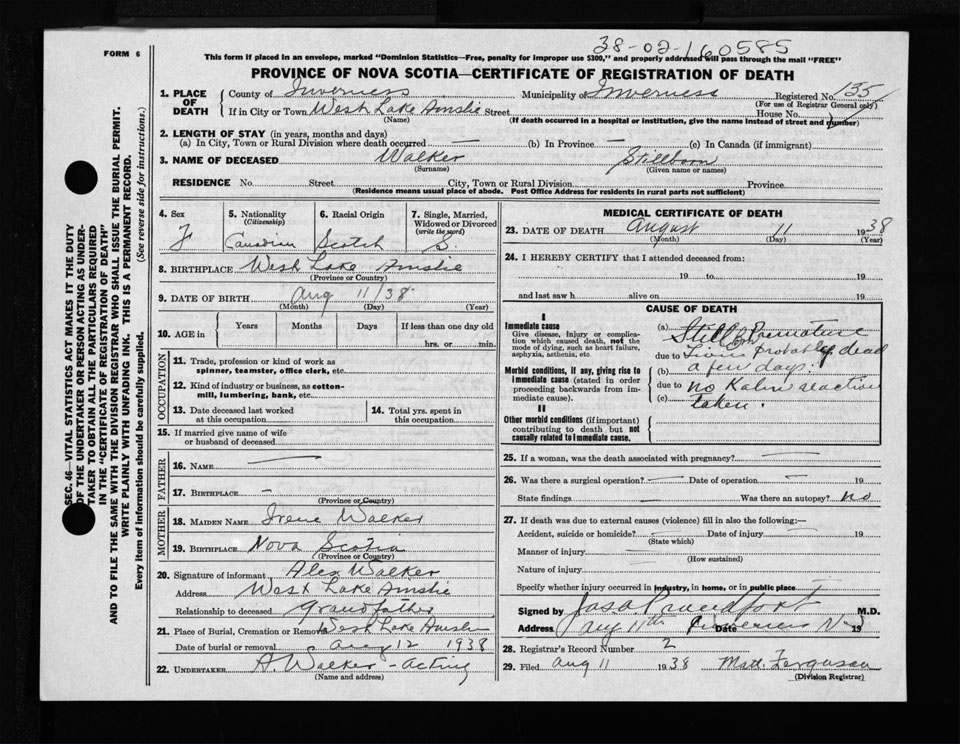 38-02-160585
FORM 6
This form if placed in an envelope, marked "Dominion Statistics—Free, penalty for improper use $300," and properly addressed will pass through the mail "FREE"
PROVINCE OF NOVA SCOTIA—CERTIFICATE OF REGISTRATION OF DEATH
1. PLACE OF DEATH
County of Inverness Municipality of Inverness Registered No. 155
(For use of Registrar General only)
If in City or Town West Lake Ainslie Street House No.
(Name) (If death occurred in a hospital or institution, give the name instead of street and number)
2. LENGTH OF STAY (in years, months and days)
(a) In City, Town or Rural Division where death occurred — (b) In Province — (c) In Canada (if immigrant)
3. NAME OF DECEASED Walker Stillborn
(Surname) (Given name or names)
RESIDENCE No. Street City, Town or Rural Division Province
(Residence means usual place of abode. Post Office Address for residents in rural parts not sufficient)
4. Sex F
5. Nationality (Citizenship) Canadian
6. Racial Origin Scotch
7. Single, Married, Widowed or Divorced (write the word) S
8. BIRTHPLACE West Lake Ainslie
(Province or Country)
9. DATE OF BIRTH Aug 11/38
(Month) (Day) (Year)
10. AGE in Years Months Days If less than one day old
hrs. or min.
OCCUPATION
11. Trade, profession or kind of work as spinner, teamster, office clerk, etc.
12. Kind of industry or business, as cotton-mill, lumbering, bank, etc.
13. Date deceased last worked at this occupation
14. Total yrs. spent in this occupation
15. If married give name of wife or husband of deceased
FATHER
16. NAME —
17. BIRTHPLACE —
(Province or Country)
MOTHER
18. MAIDEN NAME Irene Walker
19. BIRTHPLACE Nova Scotia
(Province or Country)
20. Signature of informant Alex Walker
Address West Lake Ainslie
Relationship to deceased Grandfather
21. Place of Burial, Cremation or Removal West Lake Ainslie
Date of burial or removal Aug 12 1938
22. UNDERTAKER A. Walker - acting
(Name and address)
MEDICAL CERTIFICATE OF DEATH
23. DATE OF DEATH August 11 1938
(Month) (Day) (Year)
24. I HEREBY CERTIFY that I attended deceased from:
19 to 19
and last saw h alive on 19
CAUSE OF DEATH
I
Immediate cause
Give disease, injury or complication which caused death, not the mode of dying, such as heart failure, asphyxia, asthenia, etc.
Morbid conditions, if any, giving rise to immediate cause (stated in order proceeding backwards from immediate cause).
II
Other morbid conditions (if important) contributing to death but not causally related to immediate cause.
(a) Stillborn Premature
due to probably dead
(b) a few days.
due to no Kahn reaction
(c) taken.
25. If a woman, was the death associated with pregnancy? —
26. Was there a surgical operation? — Date of operation — 19
State findings — Was there an autopsy? no
27. If death was due to external causes (violence) fill in also the following:—
Accident, suicide or homicide? — Date of injury 19
(State which)
Manner of injury —
(How sustained)
Nature of injury
Specify whether injury occurred in industry, in home, or in public place —
Signed by Jas. A. Proudfoot M.D.
Address Aug 11th Date Inverness N.S. 19
28. Registrar's Record Number 2
29. Filed Aug 11 1938 Matt. Ferguson
(Division Registrar)
SEC. 46—VITAL STATISTICS ACT MAKES IT THE DUTY
OF THE UNDERTAKER OR PERSON ACTING AS UNDER-
TAKER TO OBTAIN ALL THE PARTICULARS REQUIRED
IN THE "CERTIFICATE OF REGISTRATION OF DEATH"
AND TO FILE THE SAME WITH THE DIVISION REGISTRAR WHO SHALL ISSUE THE BURIAL PERMIT.
WRITE PLAINLY WITH UNFADING INK. THIS IS A PERMANENT RECORD.
Every item of information should be carefully supplied. (See reverse side for instructions.)